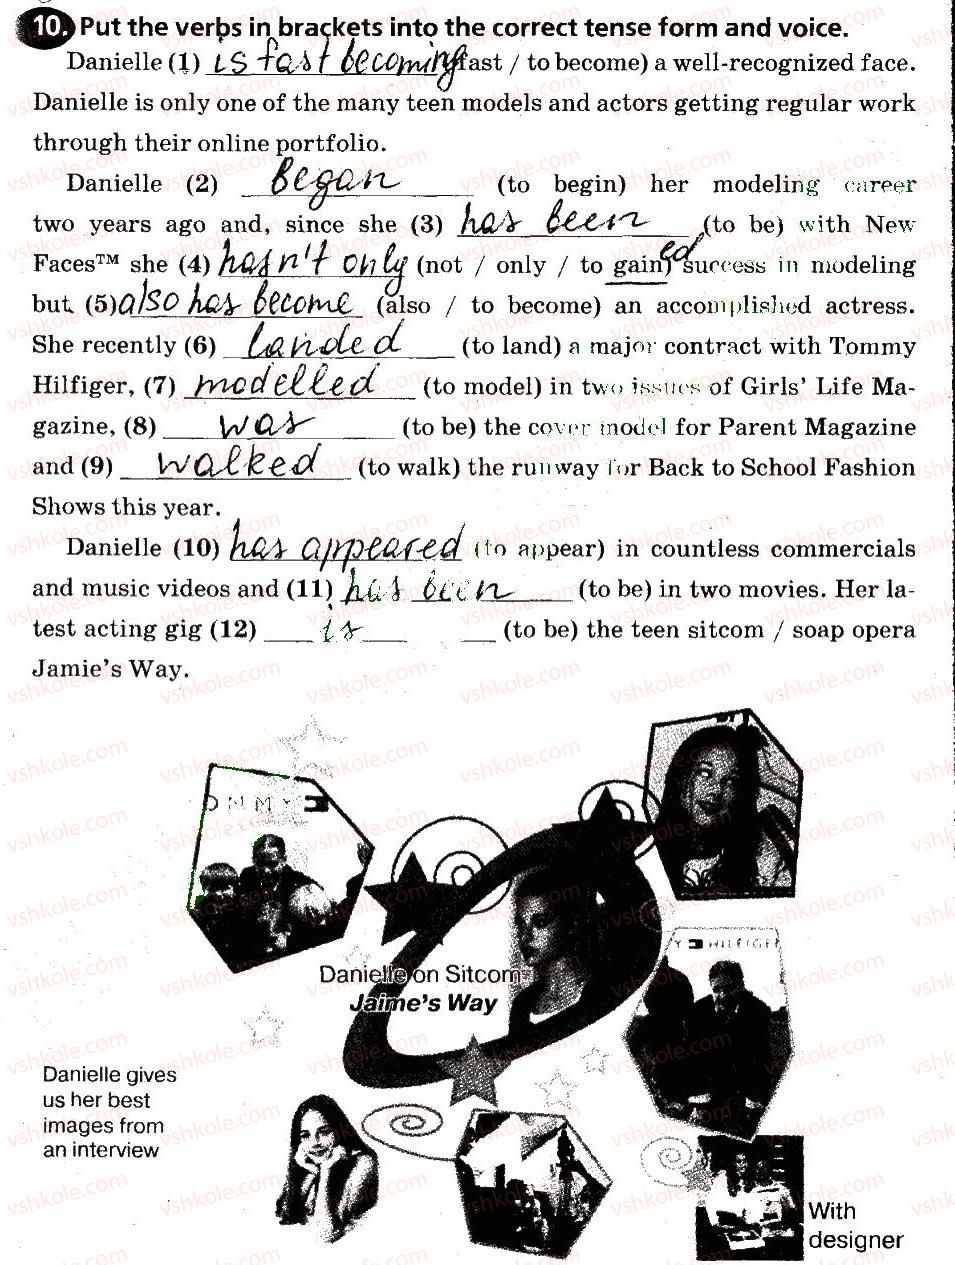 10. Put the verbs in brackets into the correct tense form and voice.
Danielle (1) is fast becoming (fast / to become) a well-recognized face.
Danielle is only one of the many teen models and actors getting regular work
through their online portfolio.
Danielle (2) began (to begin) her modeling career
two years ago and, since she (3) has been (to be) with New
Faces™ she (4) hasn't only (not / only / to gain) ed success in modeling
but (5) also has become (also / to become) an accomplished actress.
She recently (6) landed (to land) a major contract with Tommy
Hilfiger, (7) modelled (to model) in two issues of Girls' Life Ma-
gazine, (8) was (to be) the cover model for Parent Magazine
and (9) walked (to walk) the runway for Back to School Fashion
Shows this year.
Danielle (10) has appeared (to appear) in countless commercials
and music videos and (11) has been (to be) in two movies. Her la-
test acting gig (12) is (to be) the teen sitcom / soap opera
Jamie's Way.
OMMY
Y HILFIGER
Danielle on Sitcom
Jaime's Way
Danielle gives
us her best
images from
an interview
With
designer
vshkole.com